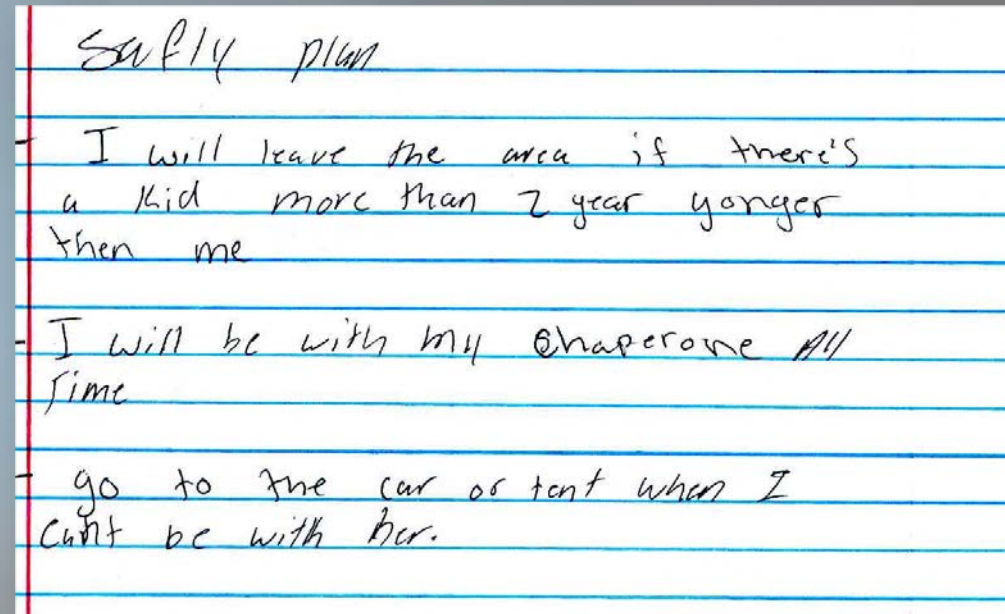 Safly plan
- I will leave the area if there's
a Kid more than 2 year yonger
then me
- I will be with my Chaperone All
Time
- go to the car or tent when I
Can't be with her.